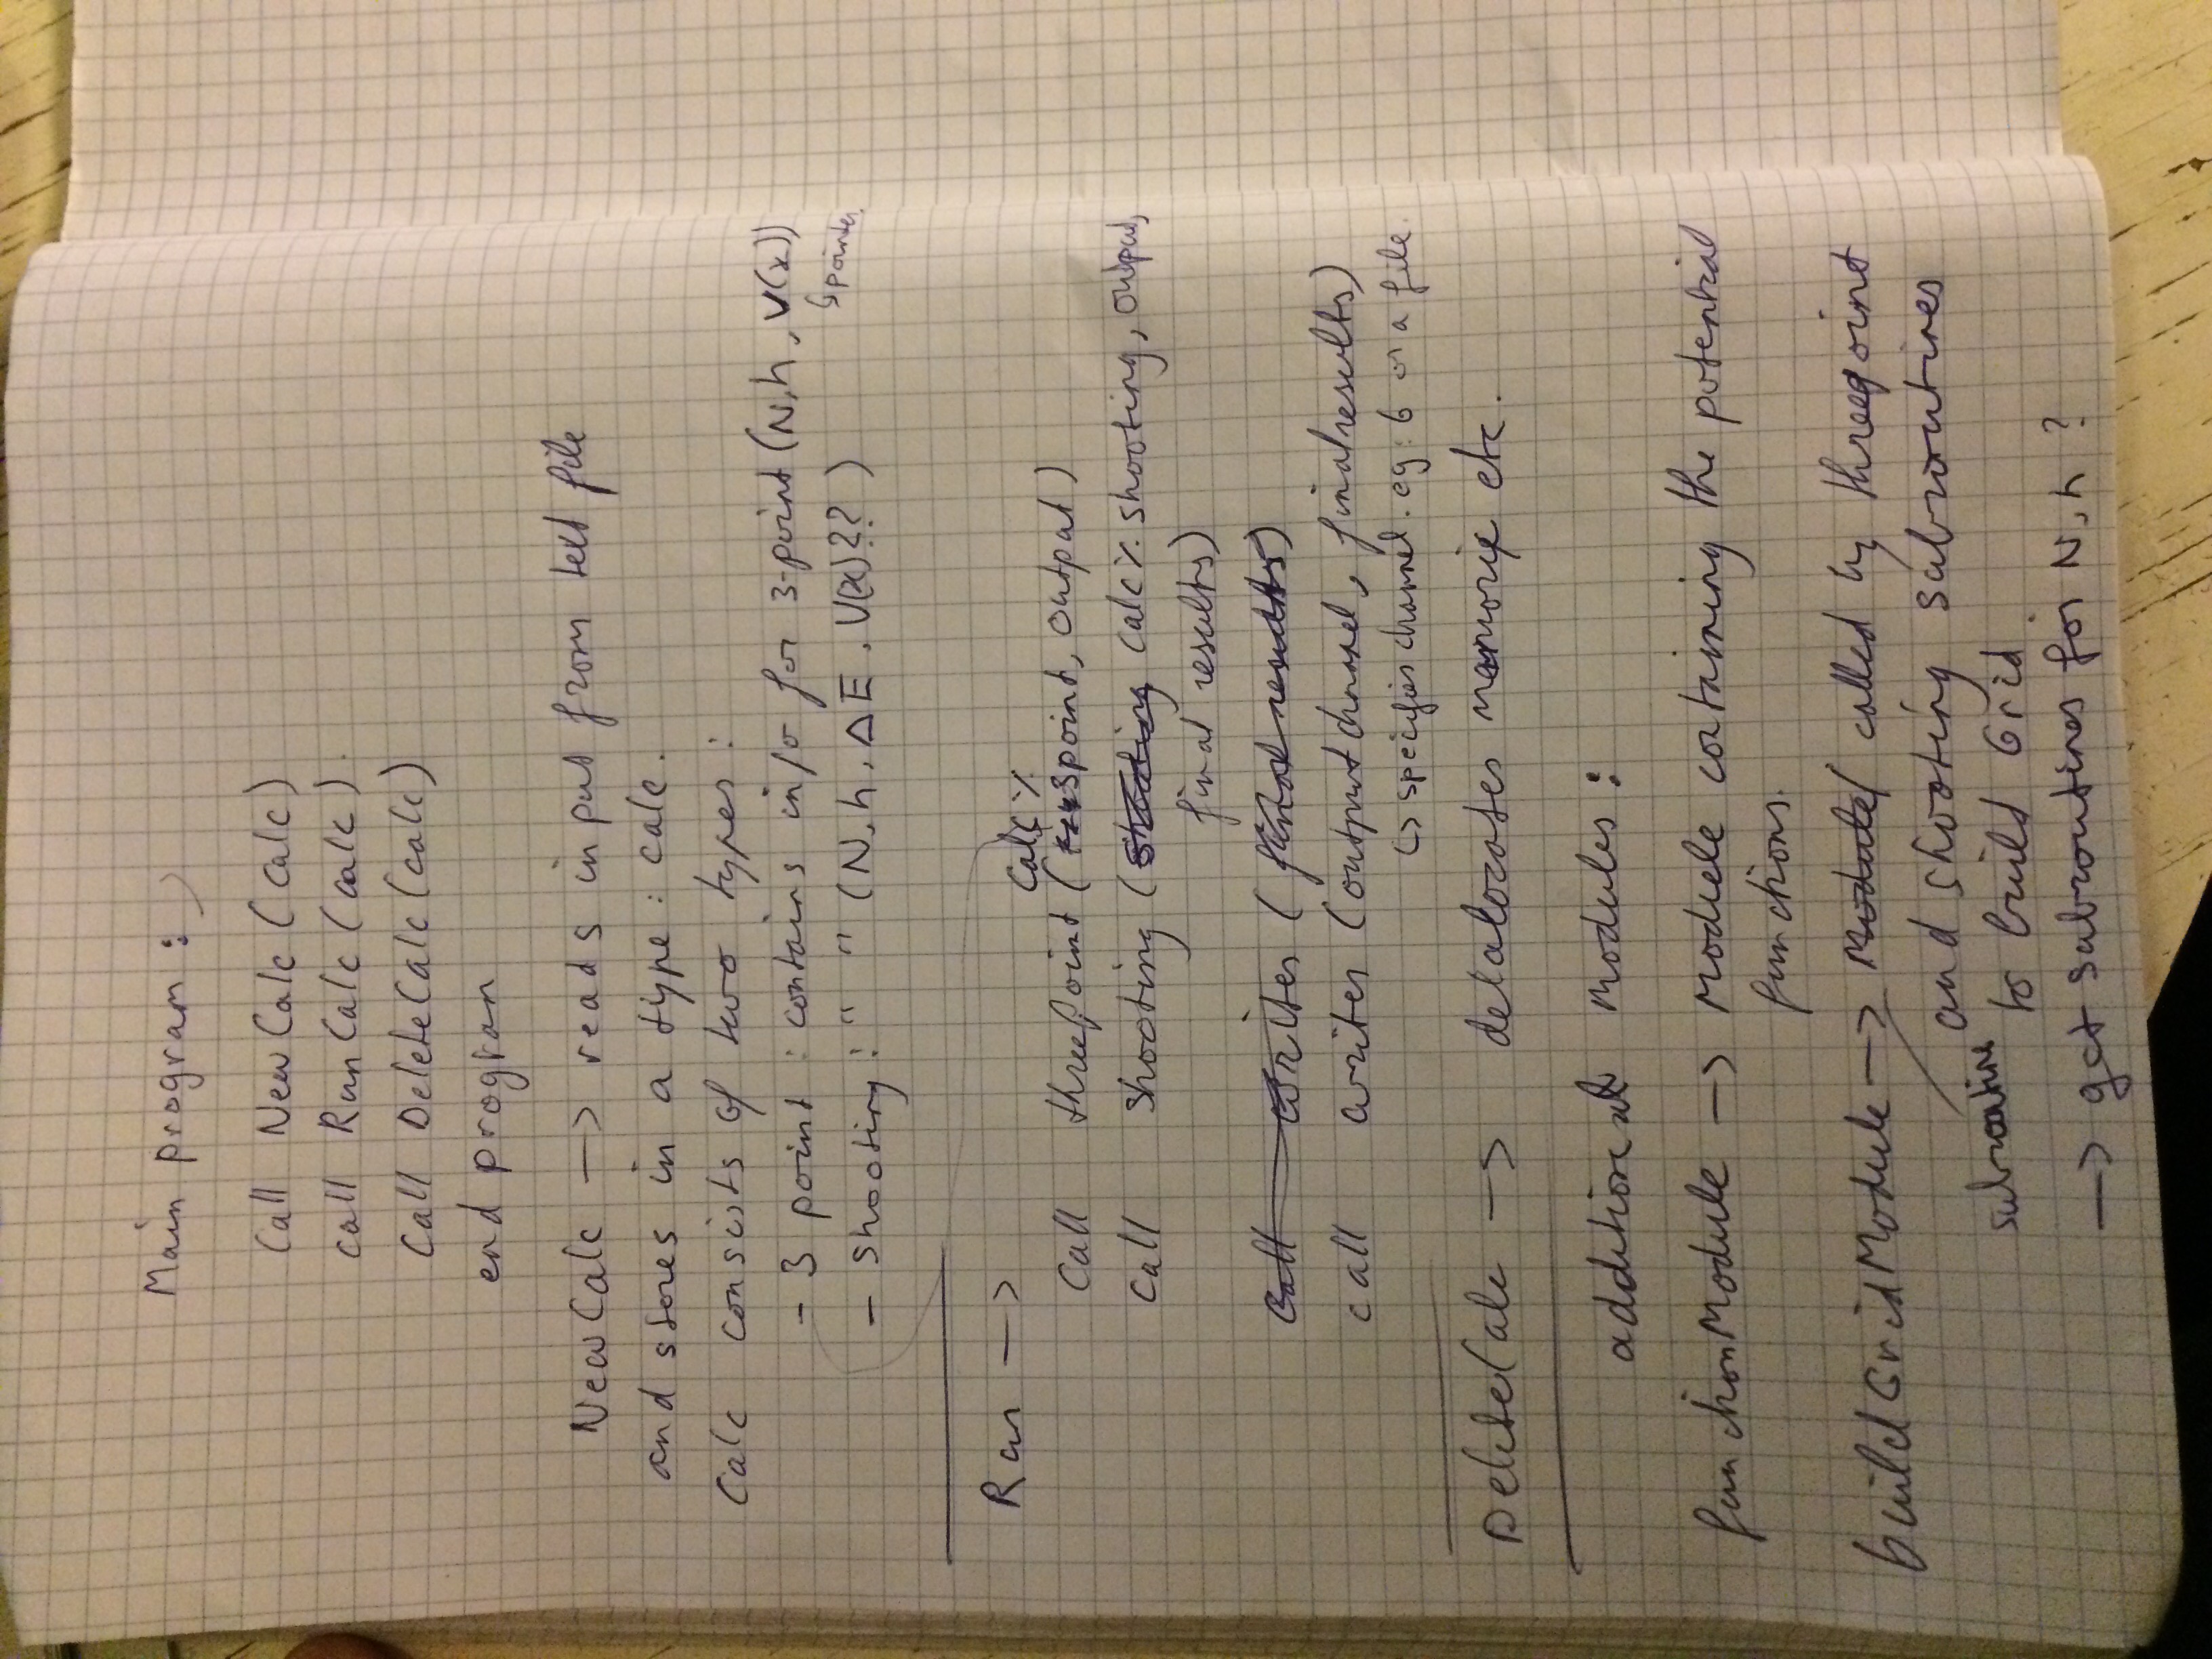 Main program :
Call NewCalc (calc)
call RunCalc (calc)
Call DeleteCalc (calc)
end program
NewCalc —> reads input from text file
and stores in a type : calc.
Calc consists of two types :
- 3 point : contains info for 3-point (N, h, V(x))
↳ pointer.
- Shooting : " " (N, h, ΔE, V(x)?? )
Run —>
Calc %
Call threePoint ( 3point, output )
Call shooting ( shooting calc % shooting, output,
final results)
Call writes ( final results)
call writes (outputchannel, finalresults)
↳ specifies channel. eg : 6 or a file.
DeleteCalc —> delalocates memorie etc.
additional modules :
functionModule —> module containing the potential
functions.
buildGridModule —> Module called by threepoint
and shooting subroutines
subroutine
to build Grid.
—> get subroutines for N, h ?